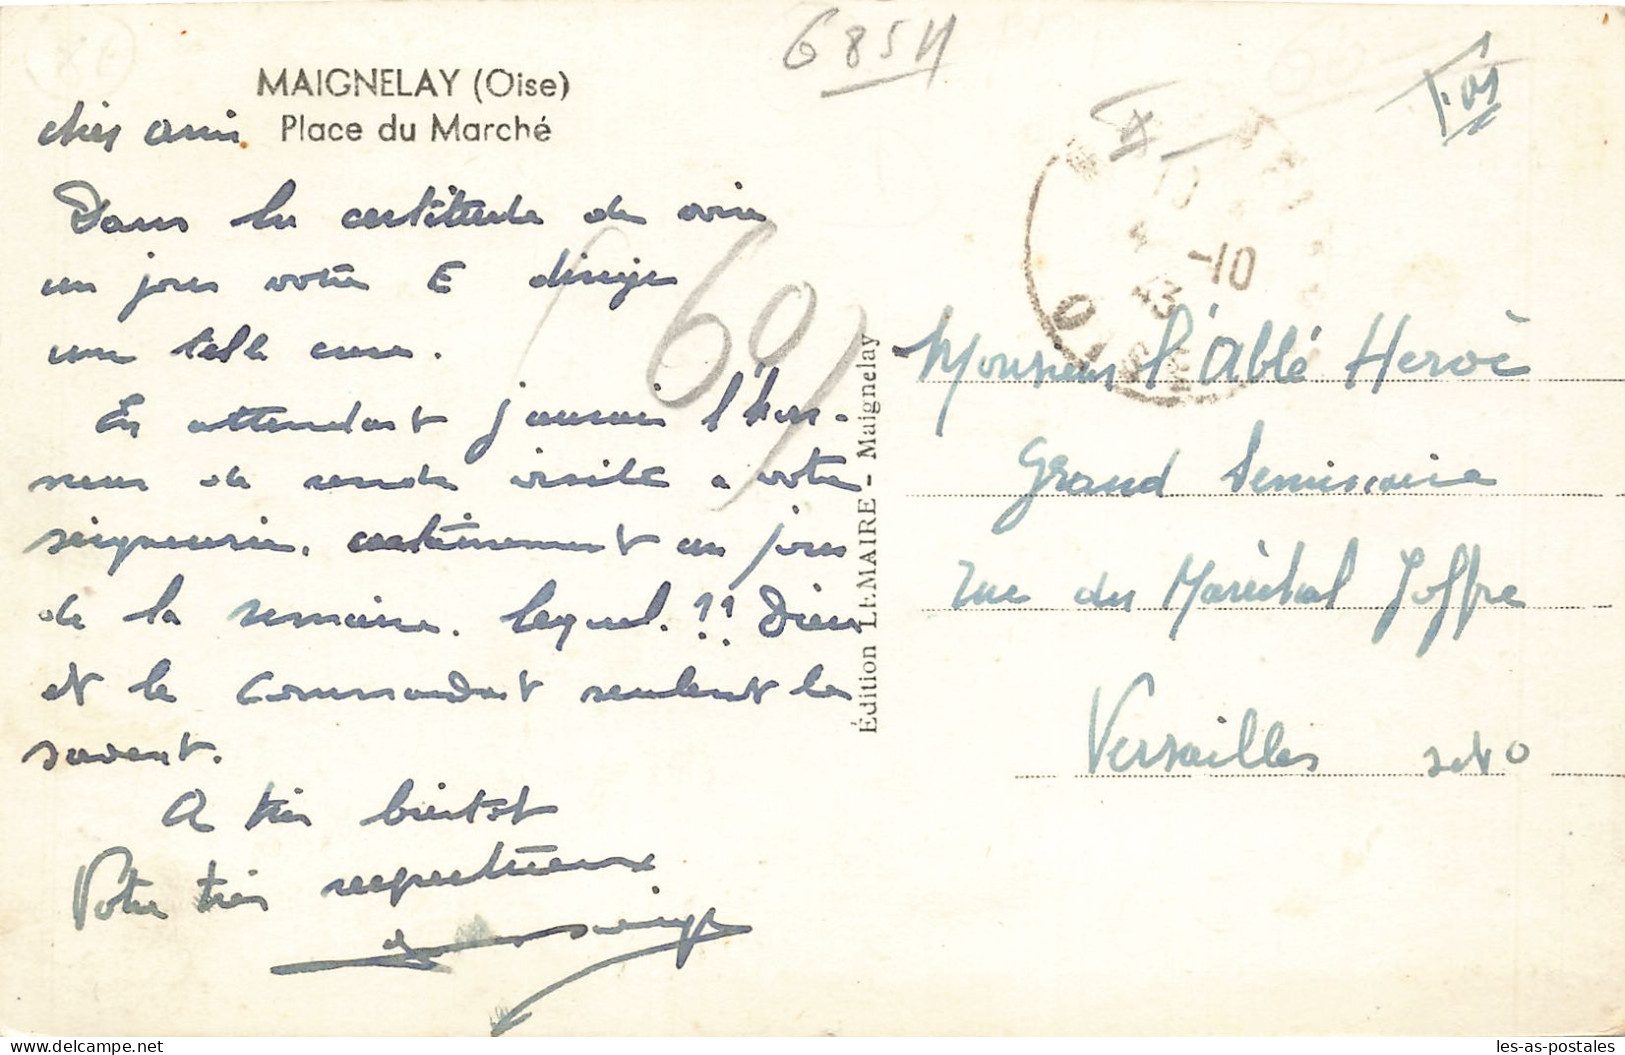 6854
MAIGNELAY (Oise)
Place du Marché
cher ami
Dans la certitude de voir
un jour votre E dirige
une telle cure.
En attendant j'aurais l'hon-
neur de rendre visite a votre
seigneurie. certainement un jour
de la semaine. lequel. ?? Dieu
et le Commandant seulent le
savent.
A très bientot
Votre très respectueux
(60)
Édition LEMAIRE - Maignelay
-10
43
OISE
Monsieur l'Abbé Hervé
Grand Seminaire
rue du Maréchal Joffre
Versailles S et O
Delcampe.net
les-as-postales